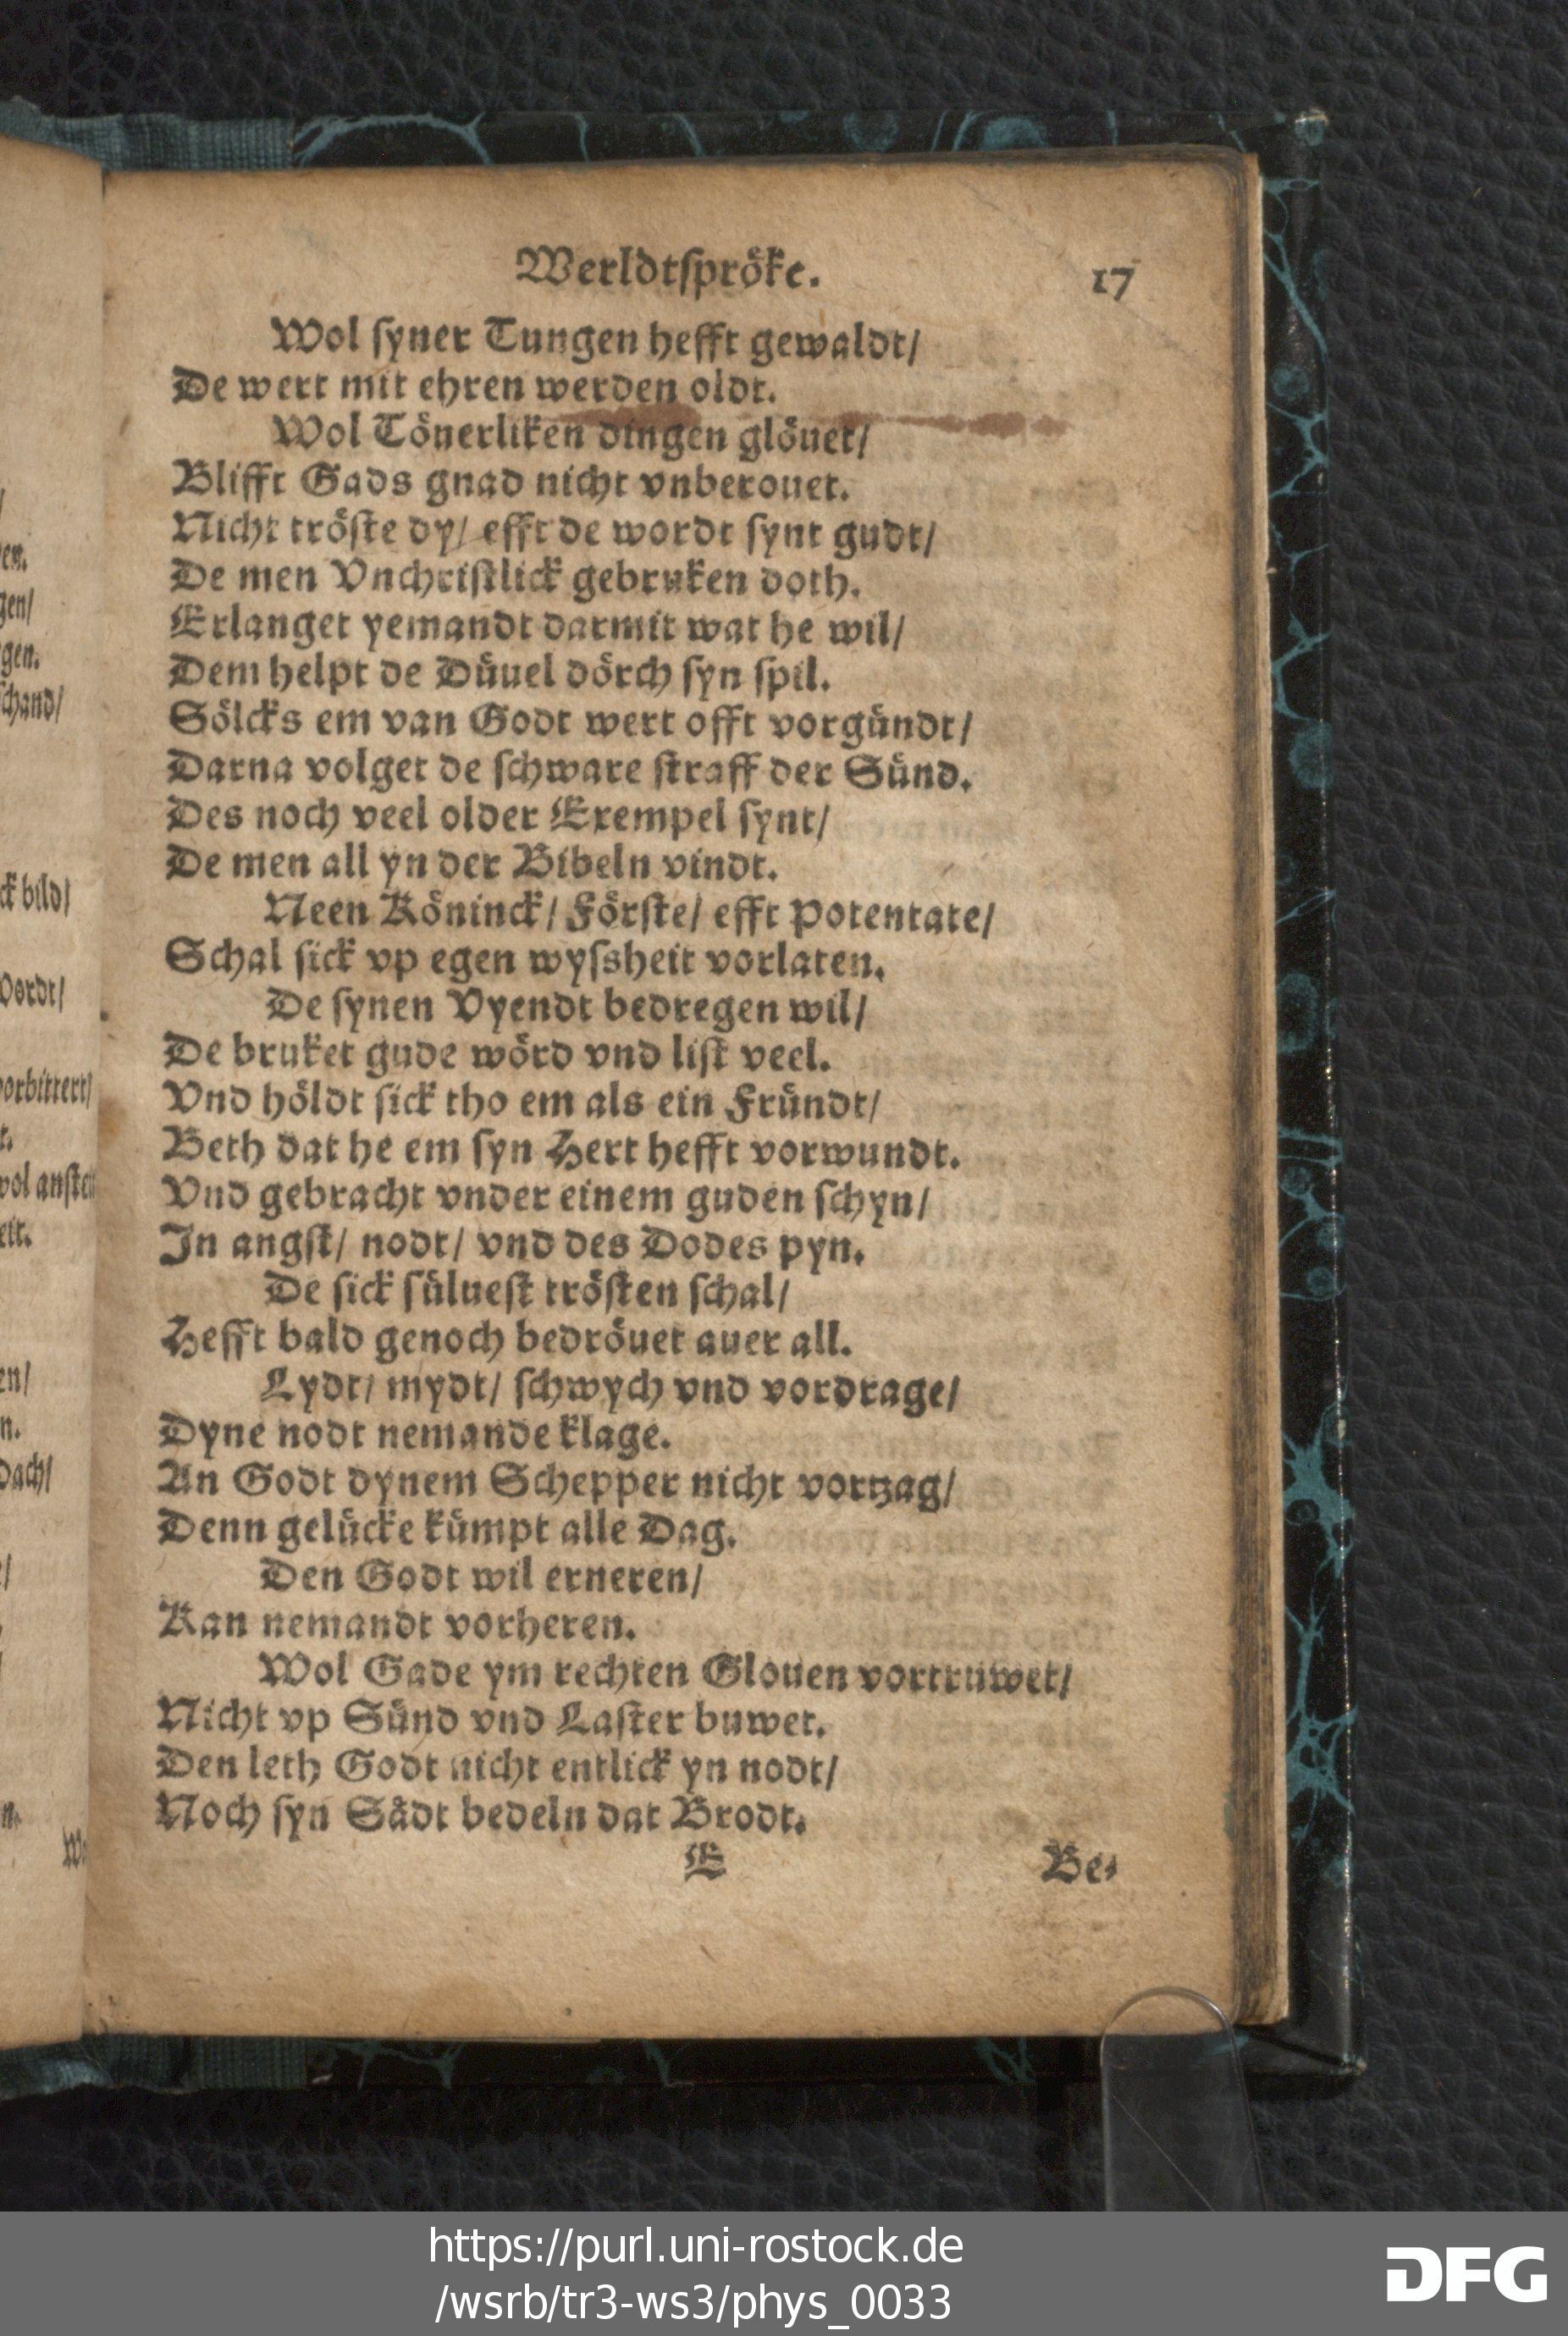 Werldtspröke. 17
Wol syner Tungen hefft gewaldt/
De wert mit ehren werden oldt.
Wol Tönerliken dingen glöuet/
Blifft Gads gnad nicht vnberouet.
Nicht tröste dy/ efft de wordt synt gudt/
De men Vnchristlick gebruken doth.
Erlanget yemandt darmit wat he wil/
Dem helpt de Düuel dörch syn spil.
Sölcks em van Godt wert offt vorgündt/
Darna volget de schware straff der Sünd.
Des noch veel older Exempel synt/
De men all yn der Bibeln vindt.
Neen Köninck/ Förste/ efft Potentate/
Schal sick vp egen wyssheit vorlaten.
De synen Vyendt bedregen wil/
De bruket gude wörd vnd list veel.
Vnd höldt sick tho em als ein Fründt/
Beth dat he em syn Hert hefft vorwundt.
Vnd gebracht vnder einem guden schyn/
In angst/ nodt/ vnd des Dodes pyn.
De sick süluest trösten schal/
Hefft bald genoch bedröuet auer all.
Lydt/ mydt/ schwych vnd vordrage/
Dyne nodt nemande klage.
An Godt dynem Schepper nicht vortzag/
Denn gelücke kümpt alle Dag.
Den Godt wil erneren/
Kan nemandt vorheren.
Wol Gade ym rechten Glouen vortruwet/
Nicht vp Sünd vnd Laster buwet.
Den leth Godt nicht entlick yn nodt/
Noch syn Sådt bedeln dat Brodt.
E Be-
gen/
gen.
schand/
ck bild/
Wordt/
vorbittert/
wol ansten
en/
n.
Dach/
https://purl.uni-rostock.de
/wsrb/tr3-ws3/phys_0033
DFG